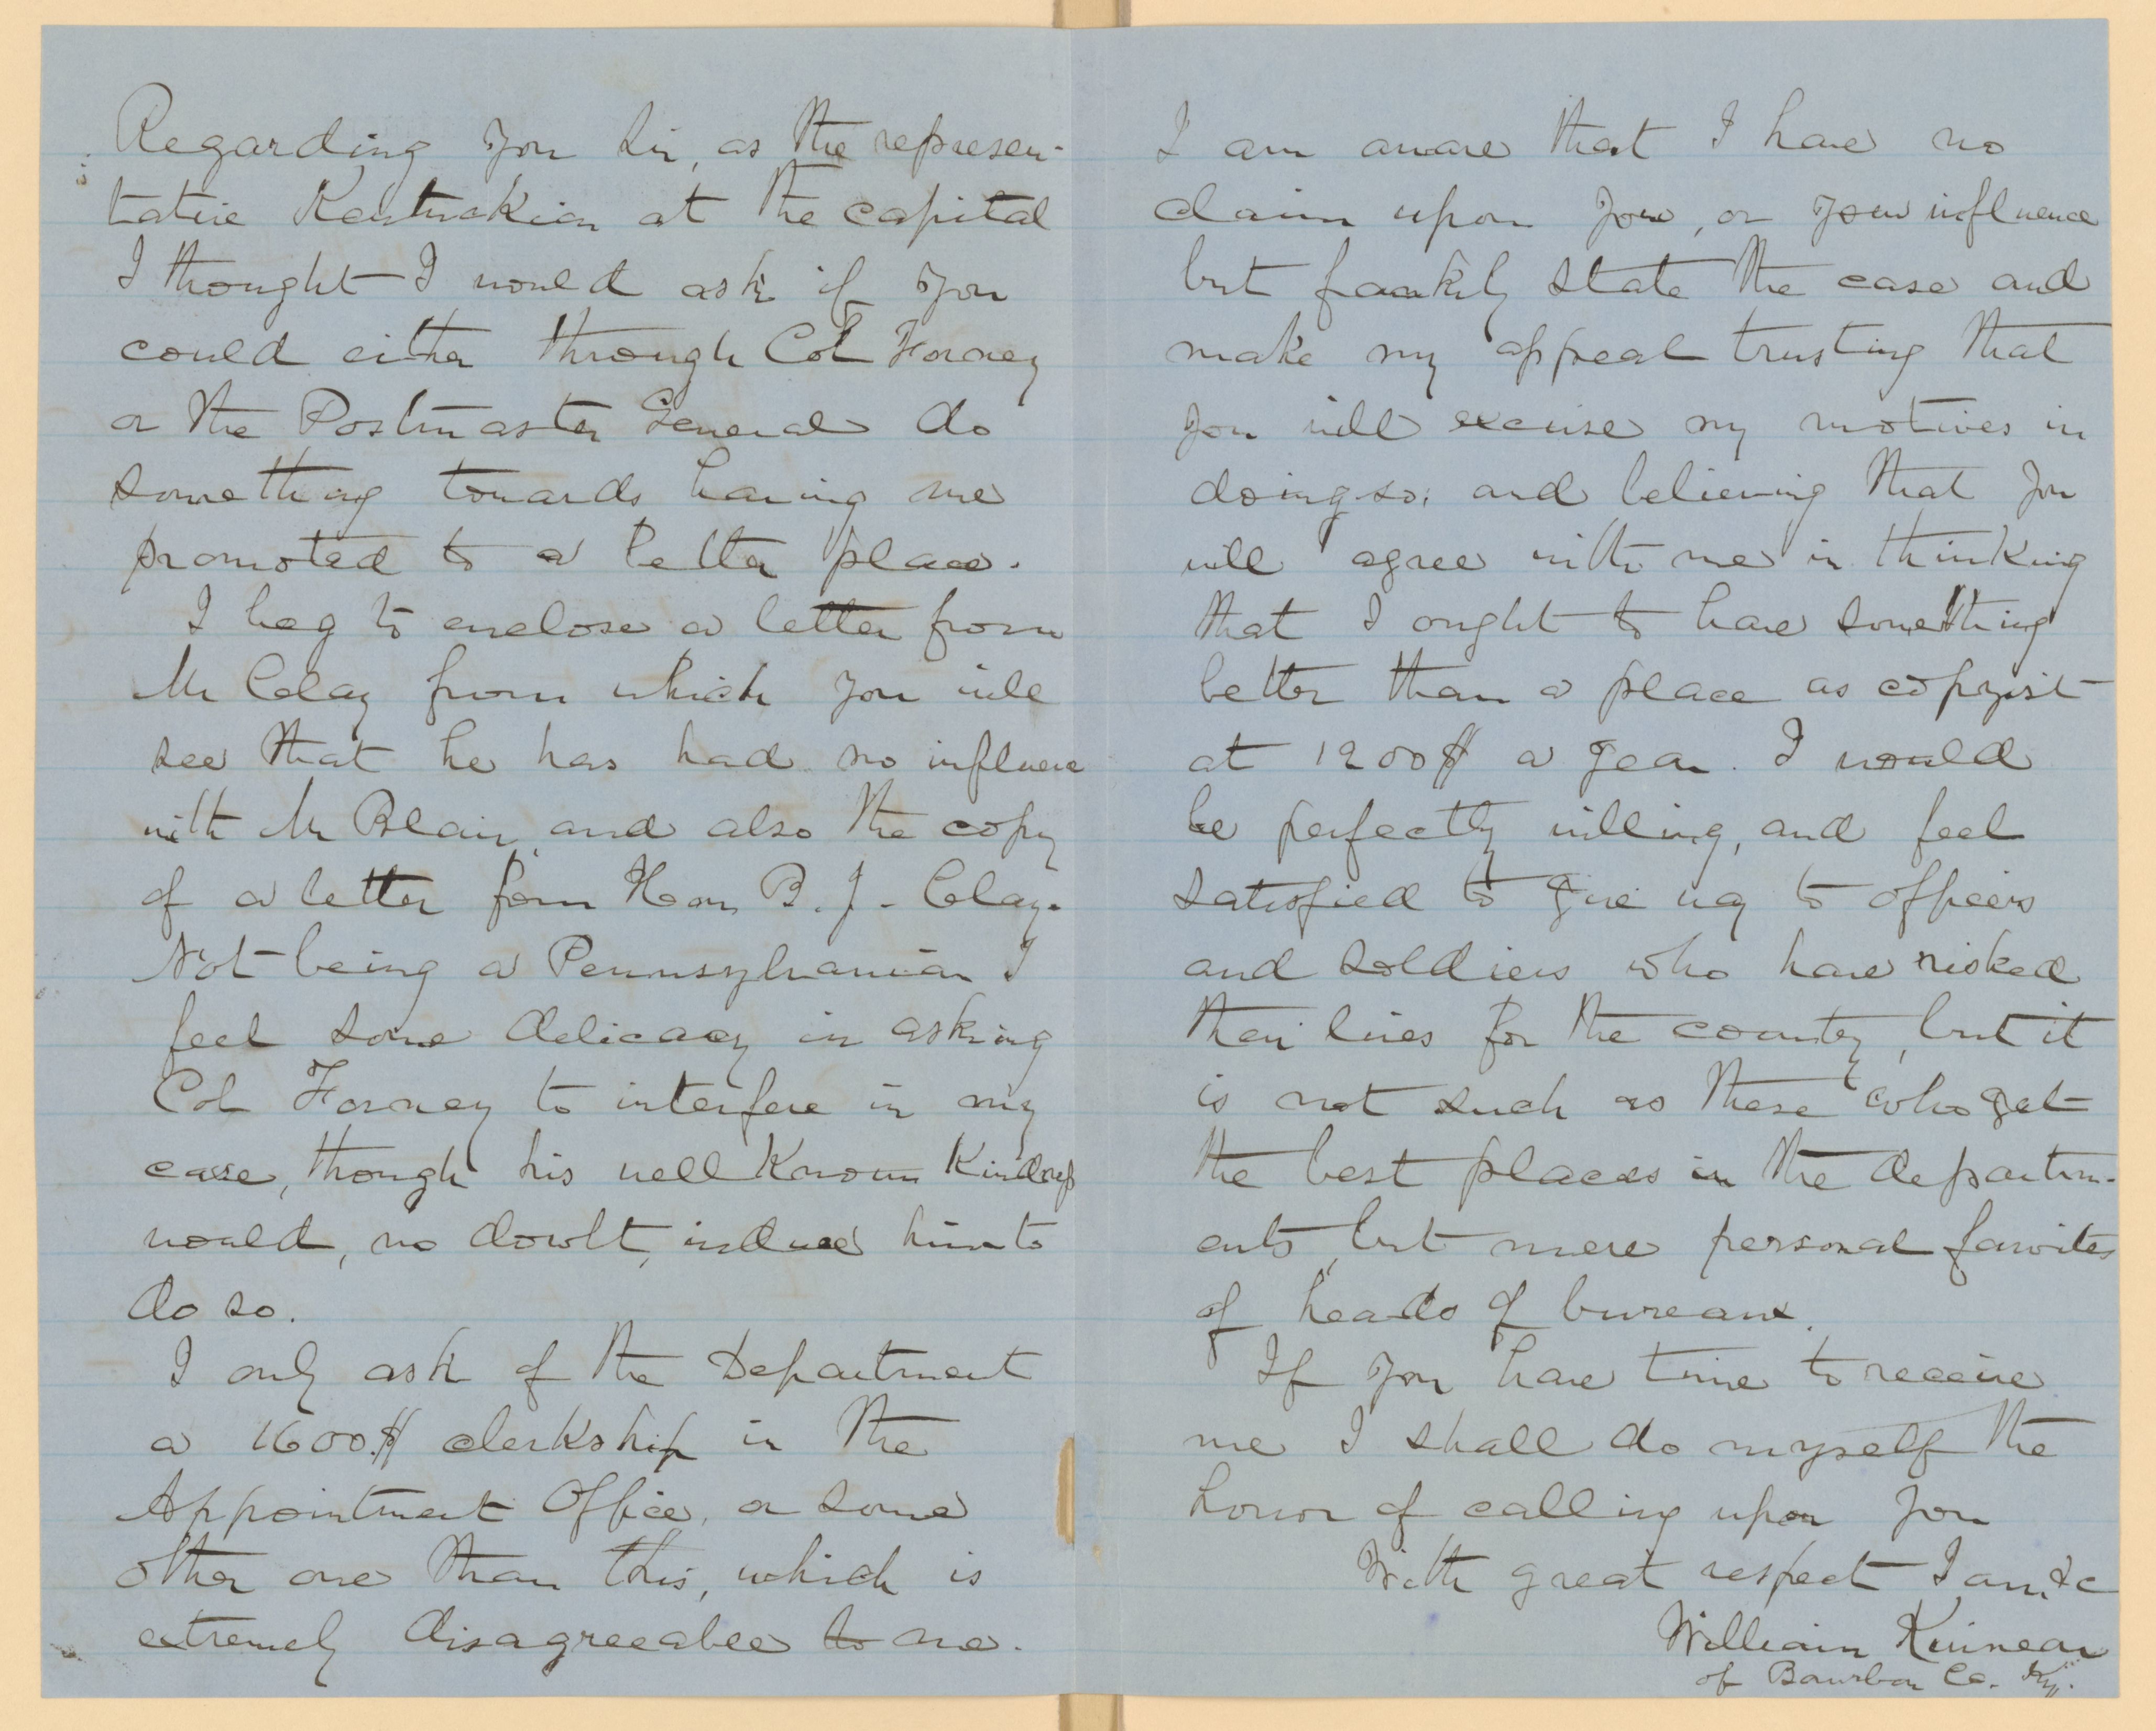 Regarding you Sir, as the represen-
tative Kentuckian at the capital
I thought I would ask if you
could either through Col Forney
or the Postmaster General do
something towards having me
promoted to a better place.
I beg to enclose a letter from
Mr Clay from which you will
see that he has had no influence
with Mr Blair, and also the copy
of a letter from Hon. B. J. Clay.
Not being a Pennsylvanian I
feel some delicacy in asking
Col Forney to interfere in my
case, though his well known kindness
would, no doubt, induce him to
do so.
I only ask of the Department
a 1600.$ clerkship in the
Appointment Office, or some
other one than this, which is
extremely disagreeable to me.
I am aware that I have no
claim upon you, or your influence
but frankly state the case and
make my appeal trusting that
you will excuse my motives in
doing so; and believing that you
will agree with me in thinking
that I ought to have something
better than a place as copyist
at 1200$ a year. I would
be perfectly willing, and feel
satisfied to give way to officers
and soldiers who have risked
their lives for the country, but it
is not such as these who get
the best places in the departm-
ents, but mere personal favorites
of heads of bureaux.
If you have time to receive
me I shall do myself the
honor of calling upon you
With great respect I am, &c
William Kinnear
of Bourbon Co. Ky.